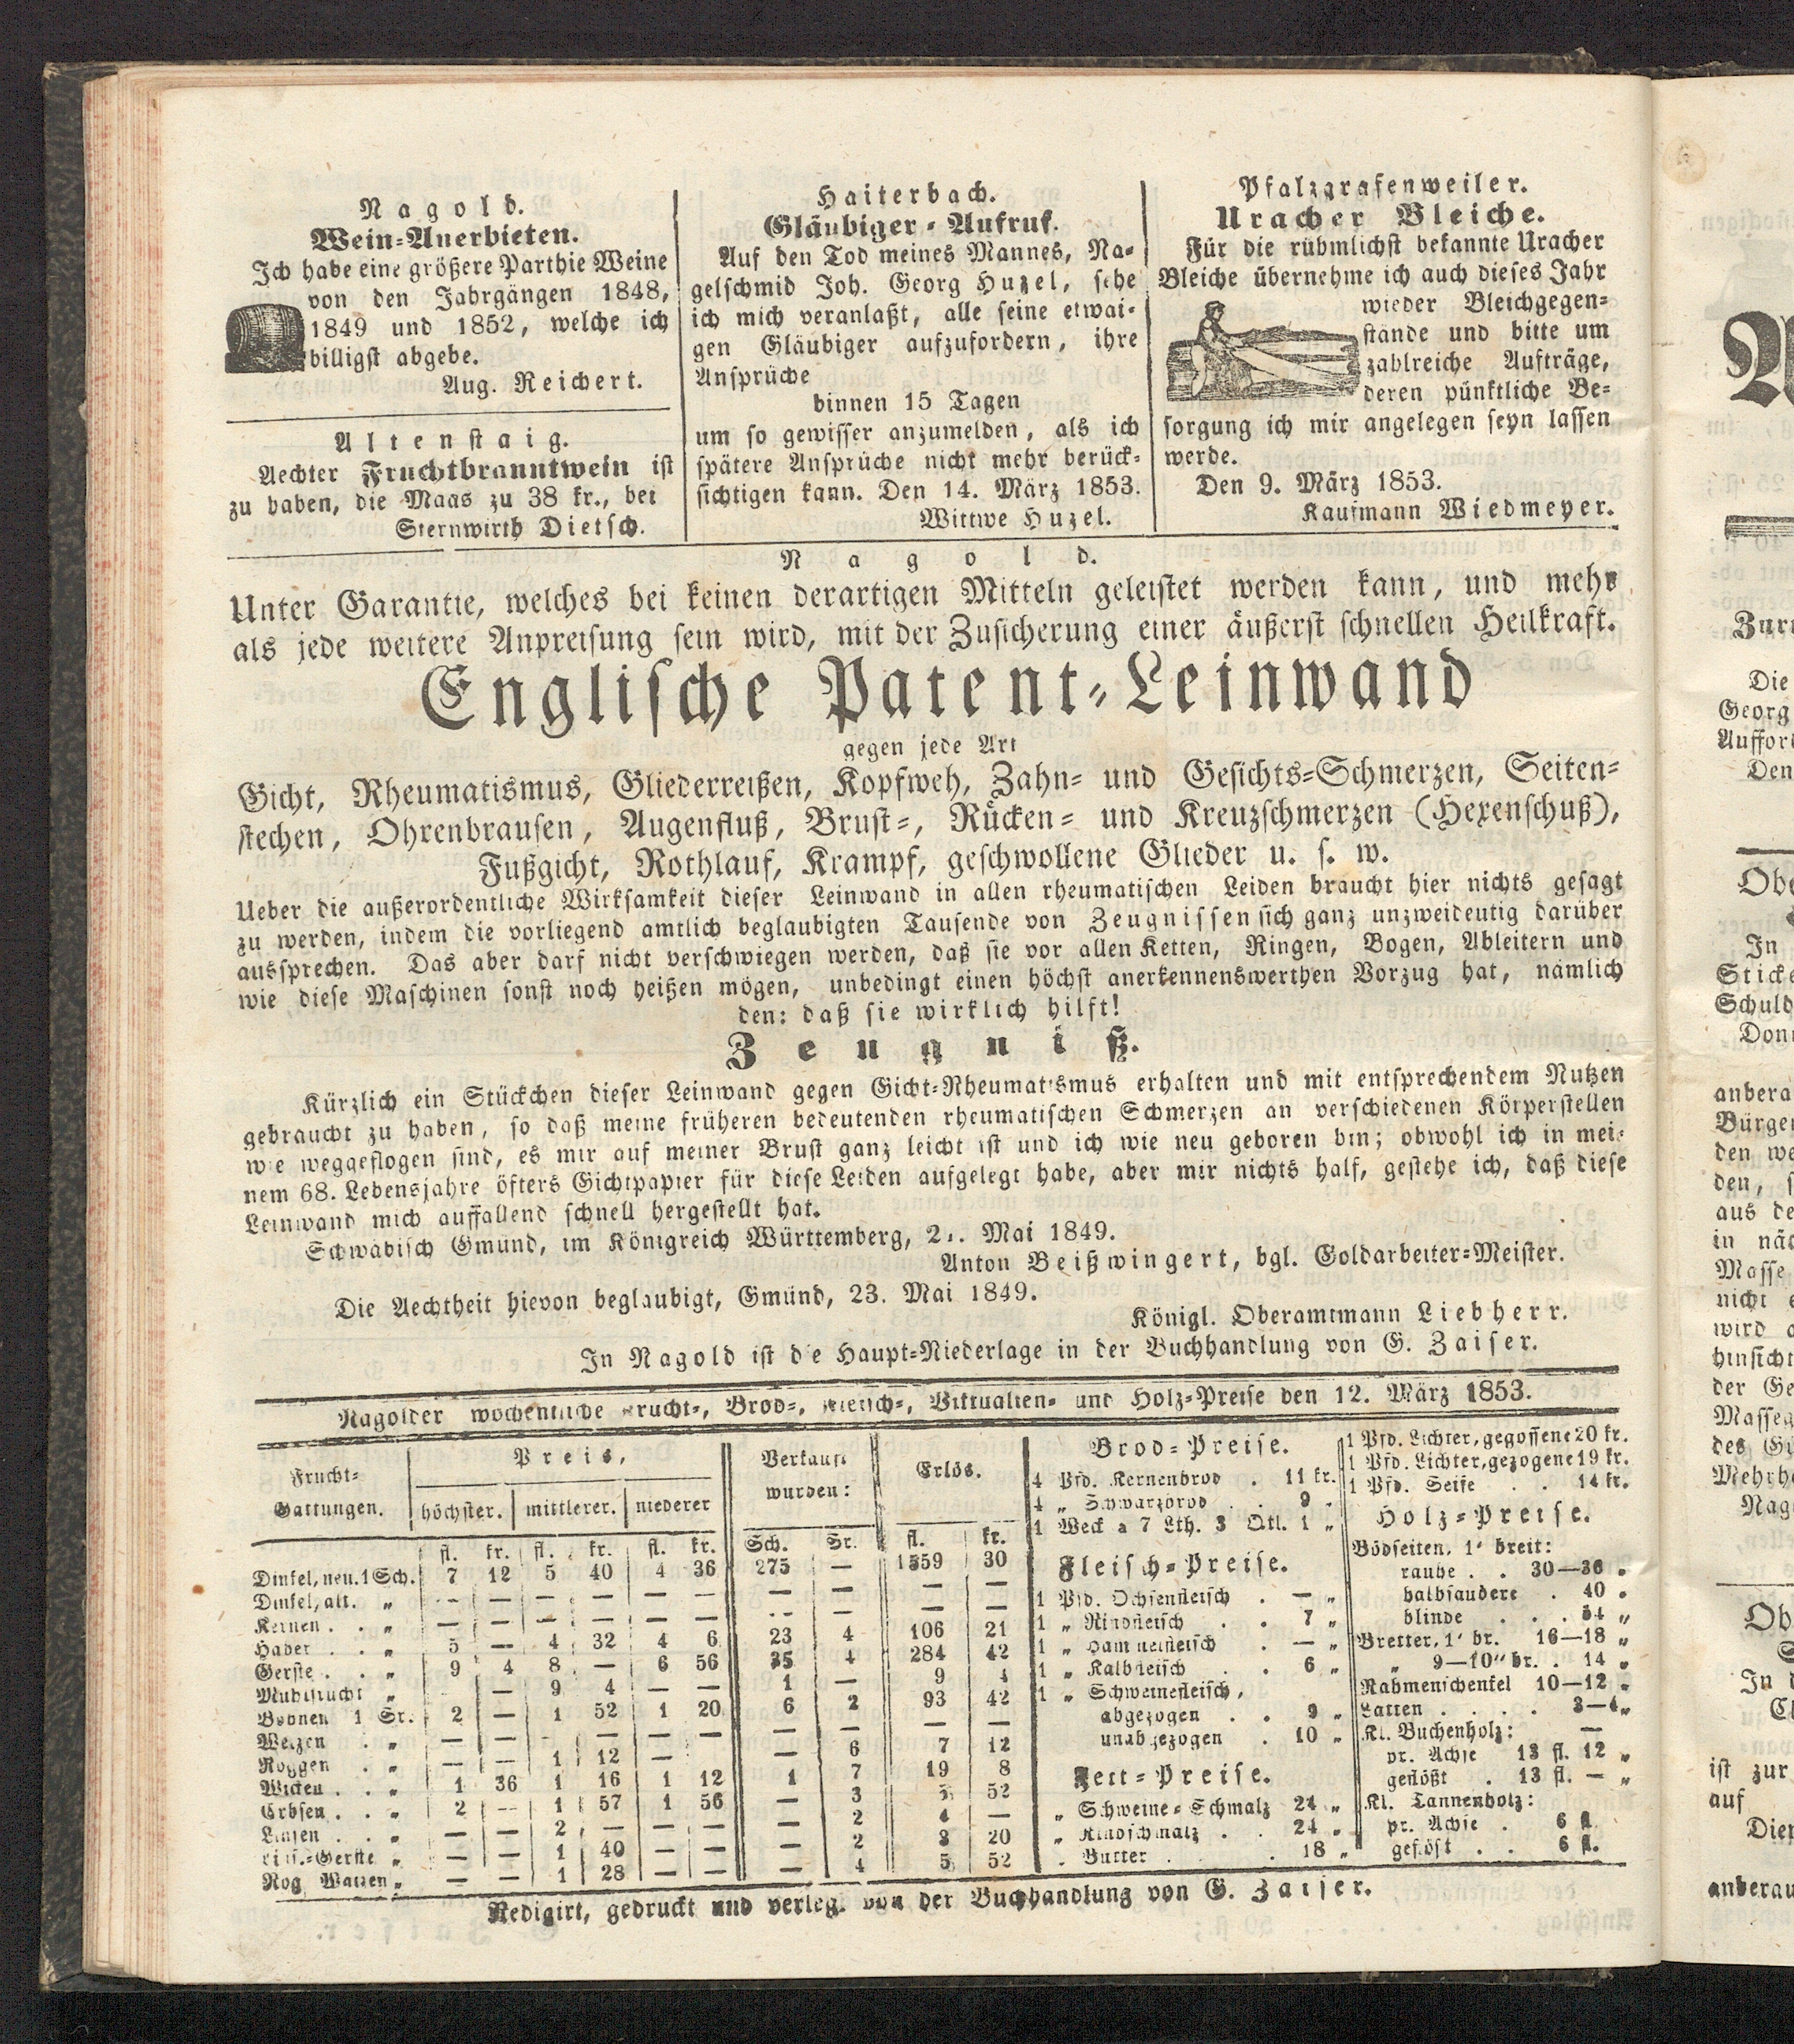 Nagold.
Wein-Anerbieten.
Ich habe eine größere Parthie Weine
von den Jahrgängen 1848,
1849 und 1852, welche ich
billigst abgebe.
Aug. Reichert.
Altenstaig.
Aechter Fruchtbranntwein ist
zu haben, die Maas zu 38 kr., bei
Sternwirth Dietsch.
Haiterbach.
Gläubiger-Aufruf.
Auf den Tod meines Mannes, Na-
gelschmid Joh. Georg Huzel, sehe
ich mich veranlaßt, alle seine etwai-
gen Gläubiger aufzufordern, ihre
Ansprüche
binnen 15 Tagen
um so gewisser anzumelden, als ich
spätere Ansprüche nicht mehr berück-
sichtigen kann. Den 14. März 1853.
Wittwe Huzel.
Pfalzgrafenweiler.
Uracher Bleiche.
Für die rühmlichst bekannte Uracher
Bleiche übernehme ich auch dieses Jahr
wieder Bleichgegen-
stände und bitte um
zahlreiche Aufträge,
deren pünktliche Be-
sorgung ich mir angelegen seyn lassen
werde.
Den 9. März 1853.
Kaufmann Wiedmeyer.
Nagold.
Unter Garantie, welches bei keinen derartigen Mitteln geleistet werden kann, und mehr
als jede weitere Anpreisung sein wird, mit der Zusicherung einer äußerst schnellen Heilkraft.
Englische Patent-Leinwand
gegen jede Art
Gicht, Rheumatismus, Gliederreißen, Kopfweh, Zahn- und Gesichts-Schmerzen, Seiten-
stechen, Ohrenbrausen, Augenfluß, Brust-, Rücken- und Kreuzschmerzen (Hexenschuß),
Fußgicht, Rothlauf, Krampf, geschwollene Glieder u. s. w.
Ueber die außerordentliche Wirksamkeit dieser Leinwand in allen rheumatischen Leiden braucht hier nichts gesagt
zu werden, indem die vorliegend amtlich beglaubigten Tausende von Zeugnissen sich ganz unzweideutig darüber
aussprechen. Das aber darf nicht verschwiegen werden, daß sie vor allen Ketten, Ringen, Bogen, Ableitern und
wie diese Maschinen sonst noch heißen mögen, unbedingt einen höchst anerkennenswerthen Vorzug hat, nämlich
den: daß sie wirklich hilft!
Zeugniß.
Kürzlich ein Stückchen dieser Leinwand gegen Gicht-Rheumatismus erhalten und mit entsprechendem Nutzen
gebraucht zu haben, so daß meine früheren bedeutenden rheumatischen Schmerzen an verschiedenen Körperstellen
wie weggeflogen sind, es mir auf meiner Brust ganz leicht ist und ich wie neu geboren bin; obwohl ich in mei-
nem 68. Lebensjahre öfters Gichtpapier für diese Leiden aufgelegt habe, aber mir nichts half, gestehe ich, daß diese
Leinwand mich auffallend schnell hergestellt hat.
Schwäbisch Gmünd, im Königreich Württemberg, Mai 1849.
Anton Beißwingert, bgl. Goldarbeiter-Meister.
Die Aechtheit hievon beglaubigt, Gmünd, 23. Mai 1849.
Königl. Oberamtmann Liebherr.
In Nagold ist die Haupt-Niederlage in der Buchhandlung von G. Zaiser.
Nagolder wöchentliche Frucht-, Brod-, Fleisch-, Viktualien- und Holz-Preise den 12. März 1853.
Frucht-
Gattungen.
Preis,
höchster. mittlerer. niederer
Verkauft
wurden:
Erlös.
fl. kr. fl. kr. fl. kr. Sch. Sr. fl. kr.
Dinkel, neu. 1 Sch. 7 12 5 40 4 36 275 — 1559 30
Dinkel, alt. „ — — — — — — — — — —
Kernen . . „ — — — — — — — — — —
Haber . . „ 5 — 4 32 4 6 23 4 106 21
Gerste . . „ 9 4 8 — 6 56 35 4 284 42
Mühlfrucht „ — 9 4 — — 1 — 9 4
Bohnen 1 Sr. 2 — 1 52 1 20 6 2 93 42
Weizen . „ — — — — — — — — — —
Roggen . „ — — 1 12 — — 6 7 12
Wicken . . „ 1 36 1 16 1 12 1 7 19 8
Erbsen . . „ 2 — 1 57 1 56 — 3 5 52
Linsen . . „ — — 2 — — — — 2 4 —
Lins.-Gerste „ — — 1 40 — — — 2 3 20
Rog Waizen „ — — 1 28 — — — 4 5 52
Brod-Preise.
4 Pfd. Kernenbrod . 11 kr.
4 „ Schwarzbrod . . 9 „
1 Weck a 7 Lth. 3 Qtl. 1 „
Fleisch-Preise.
1 Pfd. Ochsenfleisch . — „
1 „ Rindfleisch . . 7 „
1 „ Hammelfleisch . — „
1 „ Kalbfleisch . . 6 „
1 „ Schweinefleisch,
abgezogen . . 9 „
unabgezogen . 10 „
Fett-Preise.
„ Schweine-Schmalz 24 „
„ Rindschmalz . . 24 „
„ Butter . . 18 „
1 Pfd. Lichter, gegossene 20 kr.
1 Pfd. Lichter, gezogene 19 kr.
1 Pfd. Seife . . 14 kr.
Holz-Preise.
Bödseiten, 1' breit:
rauhe . . 30—36 „
halbsaubere . 40 „
blinde . . . 34 „
Bretter, 1' br. 16—18 „
„ 9—10" br. . 14 „
Rahmenschenkel 10—12 „
Latten . . . . 3—4 „
Kl. Buchenholz: —
pr. Achse 13 fl. 12 „
geflößt . 13 fl. — „
Kl. Tannenholz:
pr. Achse . 6 fl.
geflößt . . 6 fl.
Redigirt, gedruckt und verlegt von der Buchhandlung von G. Zaiser.
Die
Georg
Den
In
anbera
Bürger
den we
aus de
Masse
nicht
wird
der Ge
ist zur
auf
anberau